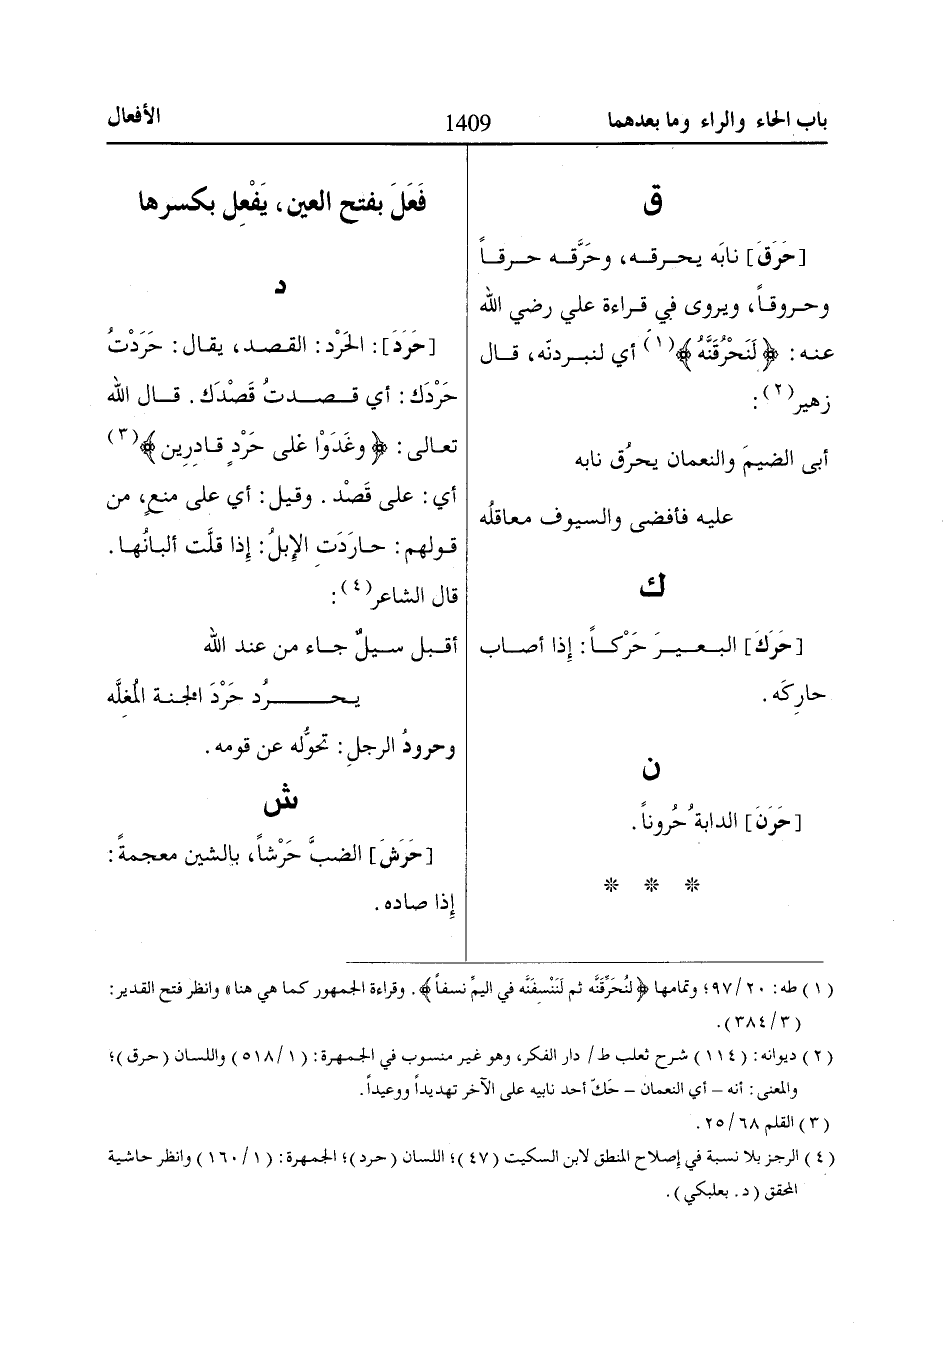 باب الحاء والراء وما بعدهما 1409 الأفعال
ق
[حَرَقَ] نابَه يحرقه، وحَرَّقه حرقاً
وحروقاً، ويروى في قراءة علي رضي الله
عنه: ﴿لَنَحْرُقَنَّهُ﴾(١) أي لنبردنّه، قال
زهير(٢):
أبى الضيمَ والنعمان يحرُق نابه
عليه فأفضى والسيوف معاقلُه
ك
[حَرَكَ] البعيرَ حَرْكاً: إذا أصاب
حارِكَه.
ن
[حَرَنَ] الدابةُ حُروناً.
* * *
فَعَلَ بفتح العين، يَفْعِل بكسرها
د
[حَرَدَ]: الحَرْد: القصد، يقال: حَرَدْتُ
حَرْدَك: أي قصدتُ قَصْدَك. قال الله
تعالى: ﴿وغَدَوْا عَلى حَرْدٍ قادِرِين﴾(٣)
أي: على قَصْد. وقيل: أي على منعٍ، من
قولهم: حارَدَتِ الإبلُ: إذا قلَّت ألبانُها.
قال الشاعر(٤):
أقبل سيلٌ جاء من عند الله
يحرُد حَرْدَ الجنة المُغِلَّه
وحرودُ الرجلِ: تحوُّله عن قومه.
ش
[حَرَشَ] الضبَّ حَرْشاً، بالشين معجمةً:
إذا صاده.
(١) طه: ٩٧/٢٠؛ وتمامها ﴿لنُحَرِّقَنَّه ثم لَنَنْسِفَنَّه في اليمِّ نسفاً﴾. وقراءة الجمهور كما هي هنا» وانظر فتح القدير:
(٣٨٤/٣).
(٢) ديوانه: (١١٤) شرح ثعلب ط/ دار الفكر، وهو غير منسوب في الجمهرة: (٥١٨/١) واللسان (حرق)؛
والمعنى: أنه – أي النعمان – حَكّ أحد نابيه على الآخر تهديداً ووعيداً.
(٣) القلم ٢٥/٦٨.
(٤) الرجز بلا نسبة في إصلاح المنطق لابن السكيت (٤٧)؛ اللسان (حرد)؛ الجمهرة: (١٦٠/١) وانظر حاشية
المحقق (د. بعلبكي).